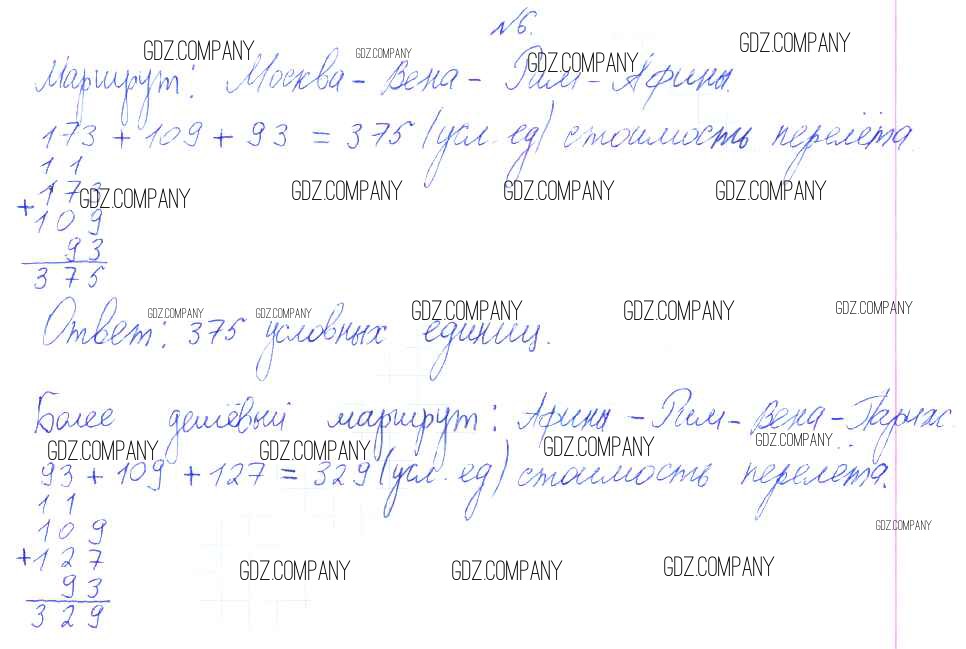 №6.
Маршрут: Москва - Вена - Рим - Афины.
173 + 109 + 93 = 375 (усл. ед) стоимость перелёта.
11
173
+ 109
93
375
Ответ: 375 условных единиц.
Более дешёвый маршрут: Афины - Рим - Вена -
93 + 109 + 127 = 329 (усл. ед) стоимость перелёта.
11
109
+ 127
93
329
GDZ.COMPANY GDZ.COMPANY GDZ.COMPANY GDZ.COMPANY
GDZ.COMPANY GDZ.COMPANY GDZ.COMPANY GDZ.COMPANY
GDZ.COMPANY GDZ.COMPANY GDZ.COMPANY GDZ.COMPANY GDZ.COMPANY
GDZ.COMPANY GDZ.COMPANY GDZ.COMPANY GDZ.COMPANY
GDZ.COMPANY
GDZ.COMPANY GDZ.COMPANY GDZ.COMPANY